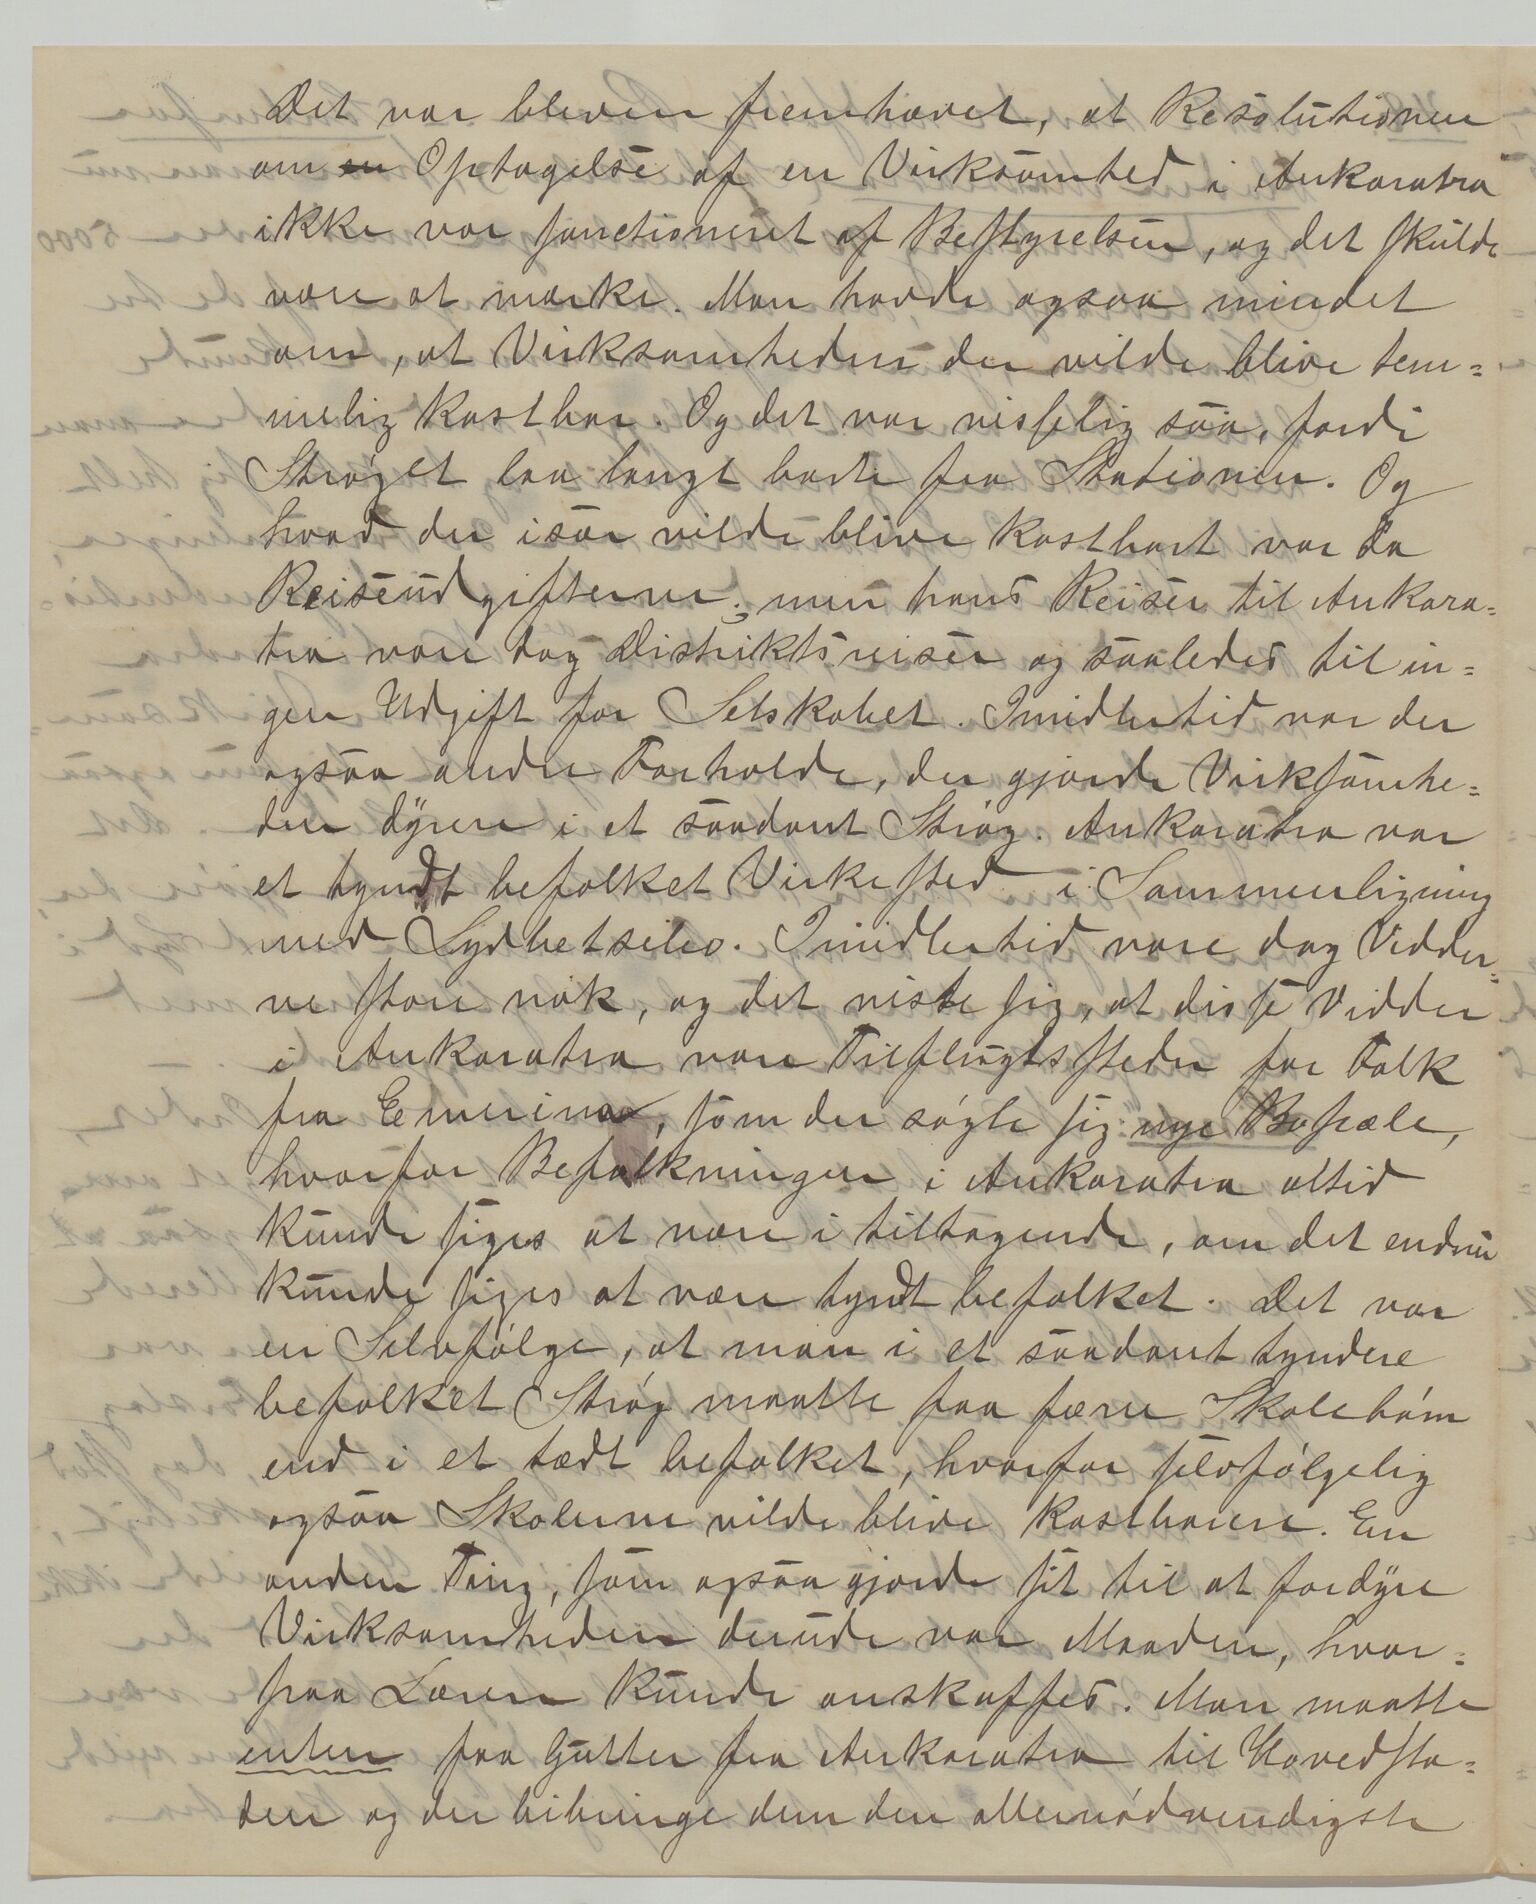 Det var bleven fremhævet, at Resolutionen
om en Optagelse af en Virksomhed i Ankaratra
ikke var sanctioneret af Bestyrelsen, og det skulde
være at mærke. Man havde ogsaa mindet
om, at Virksomheden der vilde blive tem=
melig kostbar. Og det var visselig saa, fordi
Strøget laa langt borte fra Stationen. Og
hvad der især vilde blive kostbart var da
Reiseudgifterne; men hans Reiser til Ankara=
tra vare dog Distriktsreiser og saaledes til in=
gen Udgift for Selskabet. Imidlertid var der
ogsaa andre Forholde, der gjorde Virksomhe=
den dyrere i et saadant Strøg. Ankaratra var
et tyndt befolket Virkested i Sammenligning
med Sydbetsileo. Imidlertid vare dog Vidder=
ne store nok, og det viste sig, at disse Vidder
i Ankaratra vare Tilflugtssteder for Folk
fra Emerina, som der søgte sig nye Bopæle,
hvorfor Befolkningen i Ankaratra altid
kunde siges at være i tiltagende, om det endnu
kunde siges at være tyndt befolket. Det var
en Selvfølge, at man i et saadant tyndere
befolket Strøg maatte faa færre Skolebørn
end i et tædt befolket, hvorfor selvfølgelig
ogsaa Skolerne vilde blive kostbarere. En
anden Ting, som ogsaa gjorde sit til at fordyre
Virksomheden derude var Maaden, hvor=
paa Lærere kunde anskaffes. Man maatte
enten faa Gutter fra Ankaratra til Hovedsta=
den og der bibringe dem den allernødvendigste